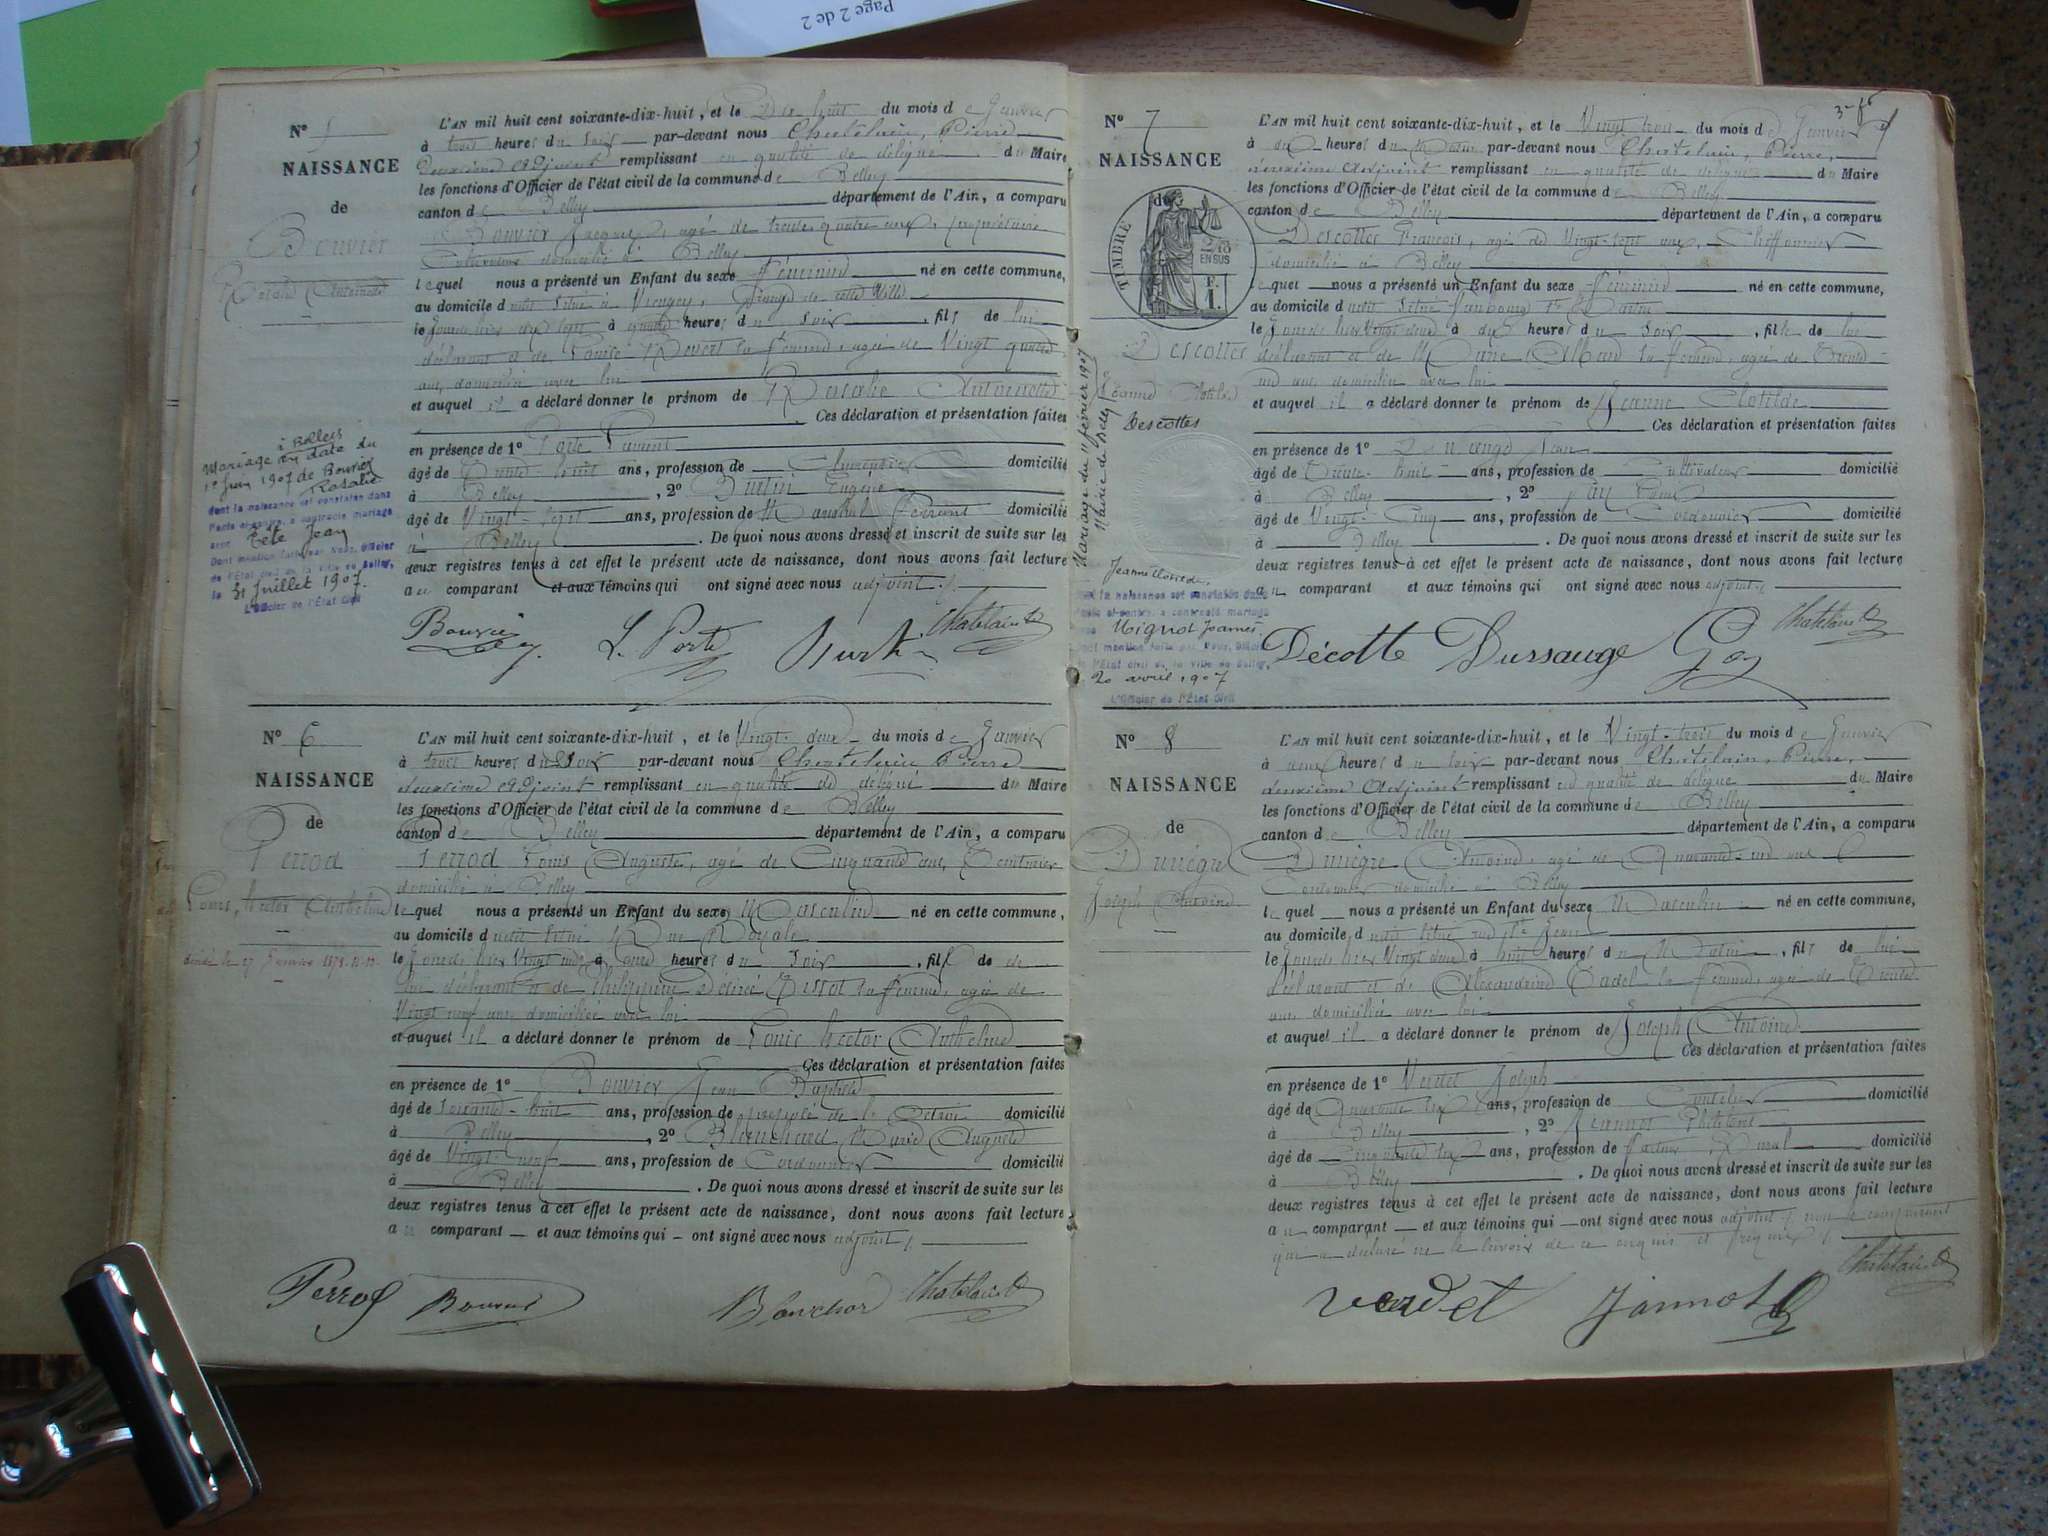 Page 2 de 2
N° 5
NAISSANCE
de
Bouvier
Rosalie Antoinette
L'AN mil huit cent soixante-dix-huit, et le Dix huit du mois de Janvier
à trois heures du soir par-devant nous Chatelain, Pierre
deuxième adjoint remplissant en qualité de délégué du Maire
les fonctions d'Officier de l'état civil de la commune de Belley
canton de Belley département de l'Ain, a comparu
Bouvier Jacques, agé de trente quatre ans, propriétaire
domicilié à Belley
lequel nous a présenté un Enfant du sexe féminin né en cette commune,
au domicile situé à de cette Ville
le Jour d'hier dix sept à quatre heures du soir, fils de lui
déclarant et de Louise sa femme, agée de Vingt quatre
ans, domiciliée avec lui
et auquel il a déclaré donner le prénom de Rosalie Antoinette
Ces déclaration et présentation faites
en présence de 1° Porte Laurent
âgé de Trente huit ans, profession de domicilié
à Belley, 2° Burtin Eugène
âgé de Vingt-sept ans, profession de Maréchal ferrant domicilié
à Belley. De quoi nous avons dressé et inscrit de suite sur les
deux registres tenus à cet effet le présent acte de naissance, dont nous avons fait lecture
au comparant et aux témoins qui ont signé avec nous adjoint /.
à Belley
Mariage en date du
1er Juin 1907 de Bouvier
Rosalie
dont la naissance est constatée dans
l'acte ci-contre, a contracté mariage
avec Tête Jean
Dont mention faite par Nous, Officier
de l'État civil de la Ville de Belley,
le 31 Juillet 1907.
L'Officier de l'État Civil
Bouvier L. Porte Burtin Chatelain
N° 6
NAISSANCE
de
Perrod
Louis, Hector Anthelme
décédé le 27 Janvier 1878
L'AN mil huit cent soixante-dix-huit, et le Vingt-deux du mois de Janvier
à trois heures du Soir par-devant nous Chatelain Pierre
deuxième adjoint remplissant en qualité de délégué du Maire
les fonctions d'Officier de l'état civil de la commune de Belley
canton de Belley département de l'Ain, a comparu
Perrod Louis Auguste, agé de Cinquante ans,
domicilié à Belley
lequel nous a présenté un Enfant du sexe Masculin né en cette commune,
au domicile situé Rue Royale
le Jour d'hier Vingt un à onze heures du soir, fils de
lui déclarant et de Philomène Désirée Tissot sa femme, agée de
Vingt neuf ans domiciliée avec lui
et auquel il a déclaré donner le prénom de Louis Hector Anthelme
Ces déclaration et présentation faites
en présence de 1° Bouvier Jean Baptiste
âgé de soixante-huit ans, profession de préposé de l'Octroi domicilié
à Belley, 2° Blanchard Marie Auguste
âgé de Vingt-neuf ans, profession de Cordonnier domicilié
à Belley. De quoi nous avons dressé et inscrit de suite sur les
deux registres tenus à cet effet le présent acte de naissance, dont nous avons fait lecture
au comparant et aux témoins qui ont signé avec nous adjoint /.
Perrod Bouvier Blanchard Chatelain
N° 7
NAISSANCE
de
TIMBRE
2/10
EN SUS
F.
1.
Descottes
Jeanne Clotilde
Descottes
L'AN mil huit cent soixante-dix-huit, et le Vingt trois du mois de Janvier
à dix heures du Matin par-devant nous Chatelain, Pierre,
deuxième adjoint remplissant en qualité de délégué du Maire
les fonctions d'Officier de l'état civil de la commune de Belley
canton de Belley département de l'Ain, a comparu
Descottes François, agé de Vingt-sept ans, Chiffonnier
domicilié à Belley
lequel nous a présenté un Enfant du sexe féminin né en cette commune,
au domicile situé faubourg St Martin
le Jour d'hier Vingt deux à dix heures du soir, fille de lui
déclarant et de Marie sa femme, agée de Trente
un ans, domiciliée avec lui
et auquel il a déclaré donner le prénom de Jeanne Clotilde
Ces déclaration et présentation faites
en présence de 1° Dussauge Jean
âgé de Trente-huit ans, profession de Cultivateur domicilié
à Belley, 2°
âgé de Vingt-Cinq ans, profession de Cordonnier domicilié
à Belley. De quoi nous avons dressé et inscrit de suite sur les
deux registres tenus à cet effet le présent acte de naissance, dont nous avons fait lecture
au comparant et aux témoins qui ont signé avec nous adjoint /.
Mariage du 11 février 1907
Mairie de Belley
Jeanne Clotilde
dont la naissance est constatée dans
l'acte ci-contre, a contracté mariage
avec Mignot Joannès
Dont mention faite par Nous, Officier
de l'État civil de la Ville de Belley,
20 avril 1907
L'Officier de l'État Civil
Décotte Dussauge Chatelain
N° 8
NAISSANCE
de
Duniègre
Joseph Antoine
L'AN mil huit cent soixante-dix-huit, et le Vingt-trois du mois de Janvier
à heures du soir par-devant nous Chatelain, Pierre,
deuxième adjoint remplissant en qualité de délégué du Maire
les fonctions d'Officier de l'état civil de la commune de Belley
canton de Belley département de l'Ain, a comparu
Duniègre Antoine, agé de Quarante-un ans
Cordonnier domicilié à Belley
lequel nous a présenté un Enfant du sexe Masculin né en cette commune,
au domicile situé rue St Jean
le Jour d'hier Vingt deux à huit heures du Matin, fils de lui
déclarant et de Alexandrine Cadet sa femme, agée de Trente
ans, domiciliée avec lui
et auquel il a déclaré donner le prénom de Joseph Antoine
Ces déclaration et présentation faites
en présence de 1° Verdet Joseph
âgé de Quarante six ans, profession de domicilié
à Belley, 2° Jeannot
âgé de Cinquante six ans, profession de facteur Rural domicilié
à Belley. De quoi nous avons dressé et inscrit de suite sur les
deux registres tenus à cet effet le présent acte de naissance, dont nous avons fait lecture
au comparant et aux témoins qui ont signé avec nous adjoint, non le comparant
qui a déclaré ne le savoir de ce enquis et requis /.
Verdet Jannot Chatelain